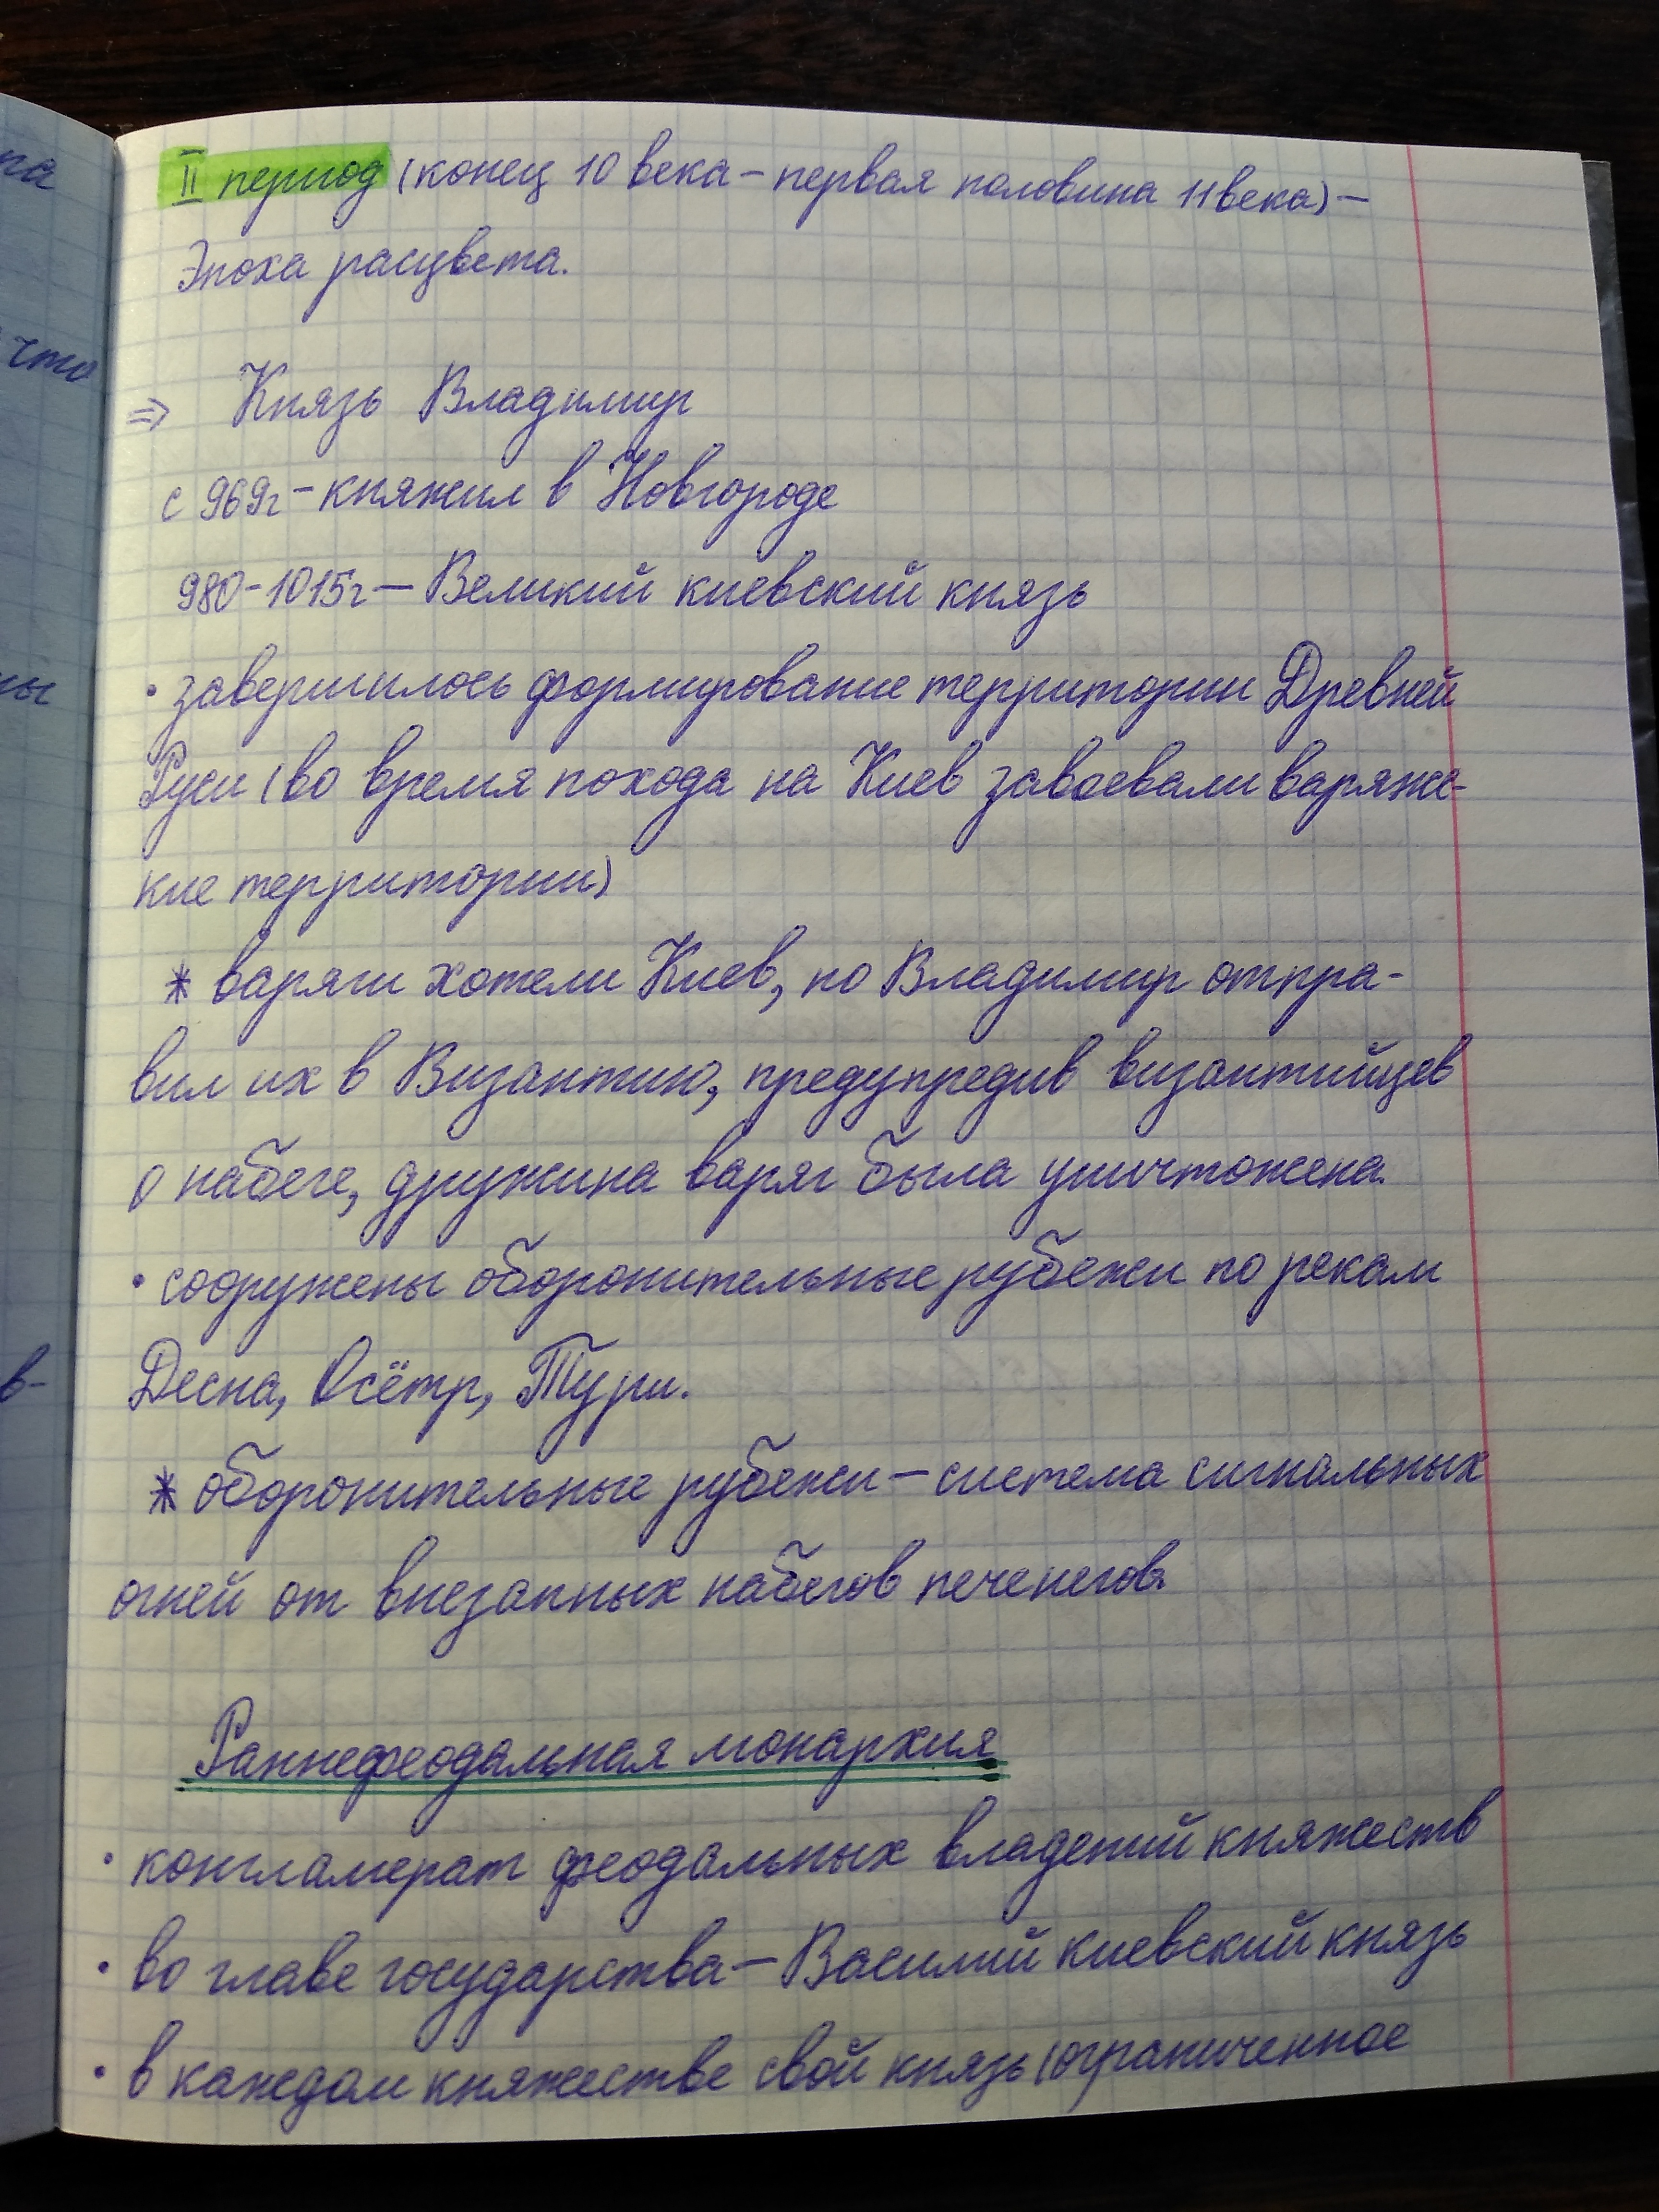 II период (конец 10 века – первая половина 11 века) –
Эпоха расцвета.
⇒ Князь Владимир
с 969г – княжил в Новгороде
980-1015г – Великий киевский князь
• завершилось формирование территории Древней
Руси (во время похода на Киев завоевали варяже-
кие территории)
* варяги хотели Киев, но Владимир отпра-
вил их в Византию, предупредив византийцев
о набеге, дружина варяг была уничтожена.
• сооружены оборонительные рубежи по рекам
Десна, Осётр, Тури.
* оборонительные рубежи – система сигнальных
огней от внезапных набегов печенегов.
Раннефеодальная монархия
• конгламерат феодальных владений княжеств
• во главе государства – Василий киевский князь
• в каждом княжестве свой князь (ограниченное
на
что
ны
в-